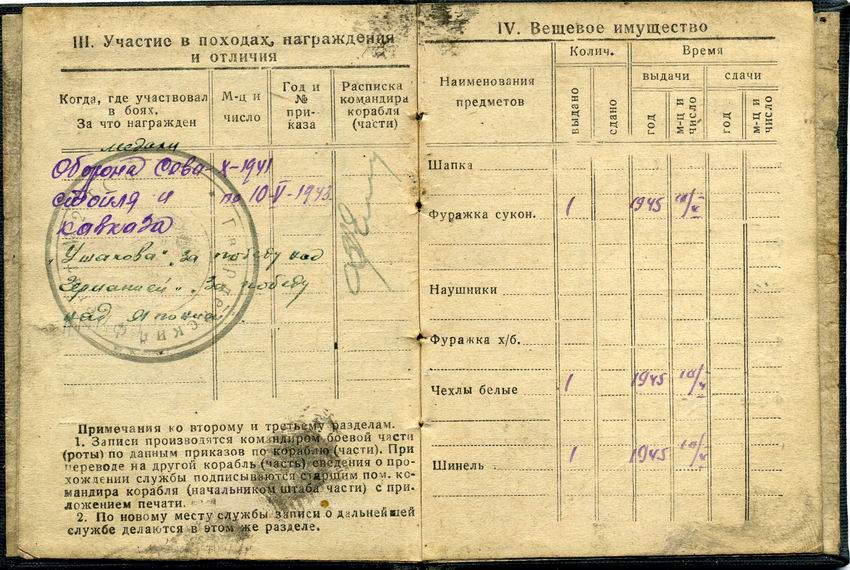 III. Участие в походах, награждения
и отличия
Когда, где участвовал
в боях.
За что награжден
М-ц и
число
Год и
№
при-
каза
Расписка
командира
корабля
(части)
медали
Оборона Сева- X-1941
стополя и по 10-V-1943
Кавказа
"Ушакова", За победу над
Германией", За победу
над Японией
Примечания ко второму и третьему разделам.
1. Записи производятся командиром боевой части
(роты) по данным приказов по кораблю (части). При
переводе на другой корабль (часть) сведения о про-
хождении службы подписываются старшим пом. ко-
мандира корабля (начальником штаба части) с при-
ложением печати.
2. По новому месту службы записи о дальнейшей
службе делаются в этом же разделе.
IV. Вещевое имущество
Наименования
предметов
Колич.
выдано
сдано
Время
выдачи
год
м-ц и
число
сдачи
год
м-ц и
число
Шапка
Фуражка сукон. 1 1945
Наушники
Фуражка х/б.
Чехлы белые 1 1945
Шинель 1 1945